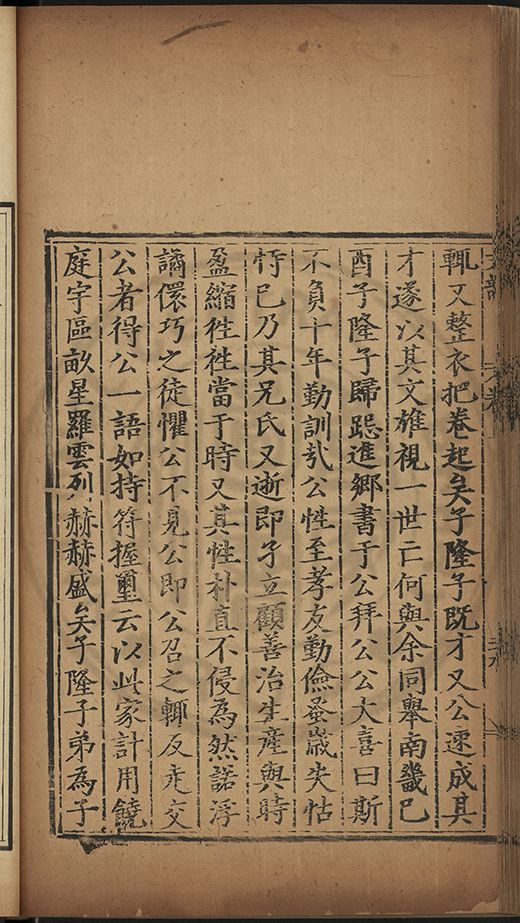 輒又整衣把卷起矣子隆子既才又公速成其
才遂以其文雄視一世亡何與余同舉南畿已
酉子隆子歸跽進鄉書于公拜公公大喜曰斯
不負十年勤訓㢤公性至孝友勤儉蚤歲失怙
恃已乃其兄氏又逝即孑立顧善治生產與時
盈縮徃徃當于時又其性朴直不侵為然諾浮
譎儇巧之徒懼公不見公即公召之輒反走交
公者得公一語如持符握璽云以此家計用饒
庭宇區畝星羅雲列赫赫盛矣子隆子弟為子